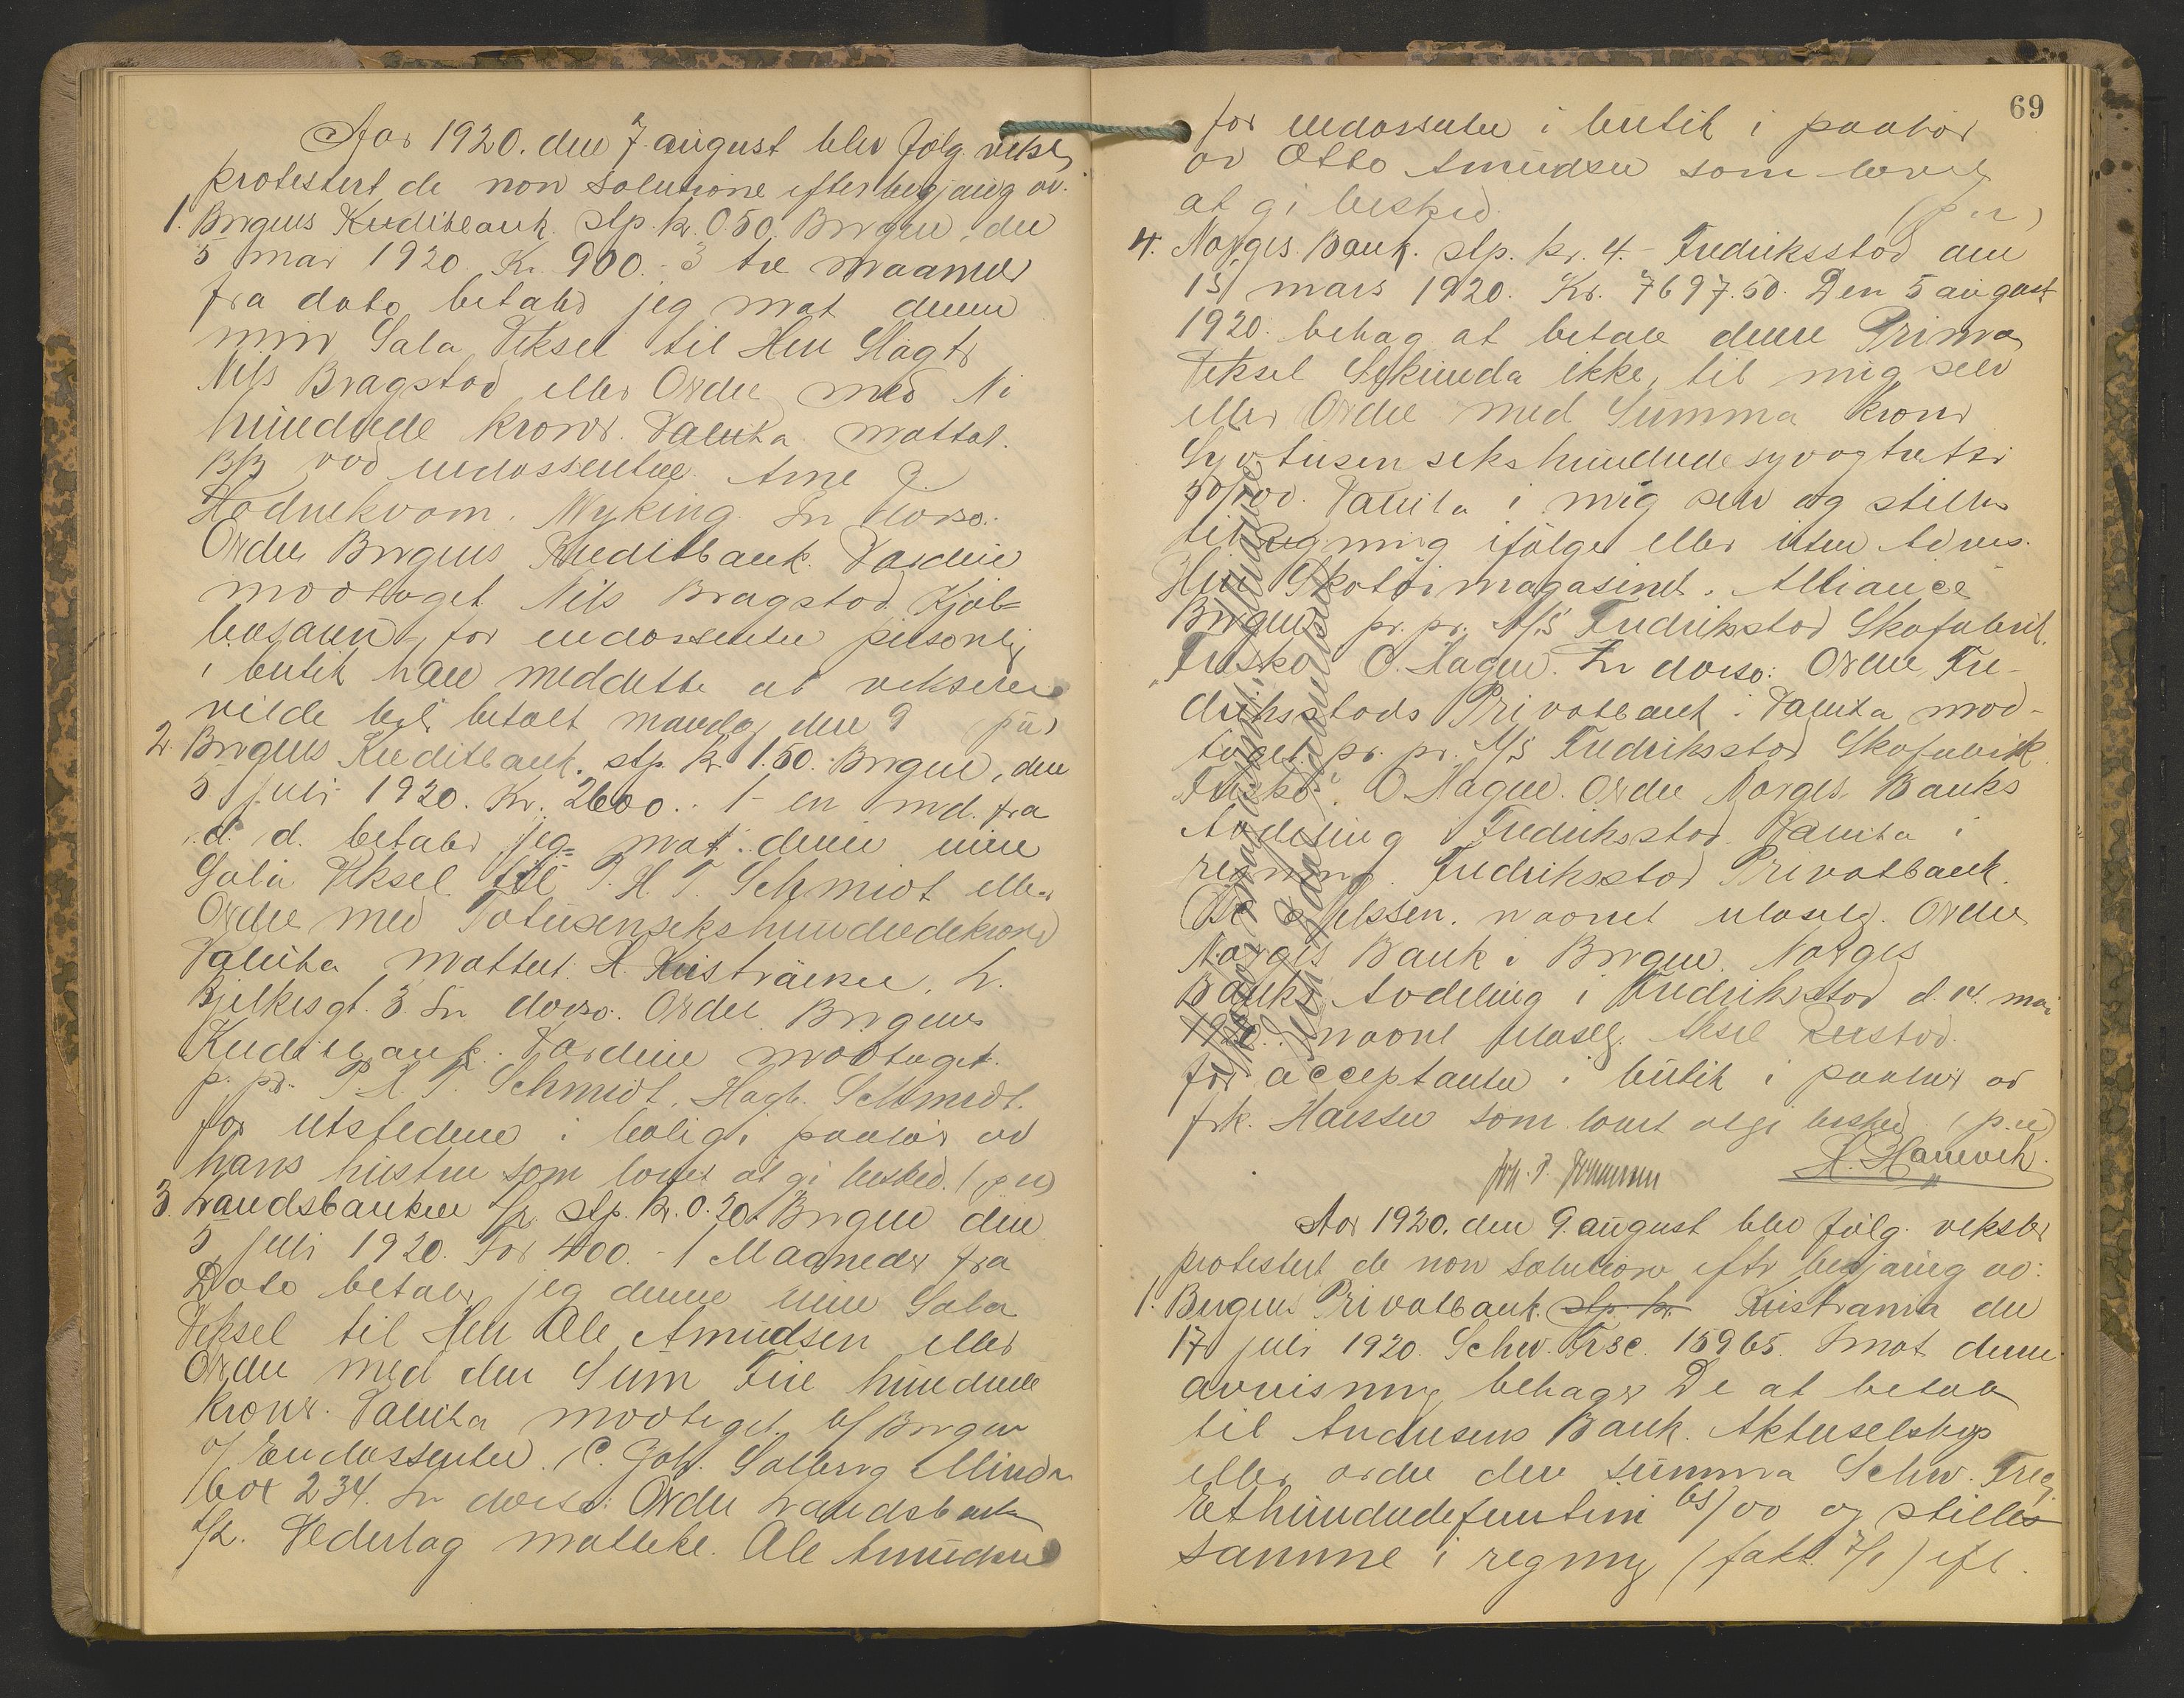 Aar 1920. den 7. august blev følg. veksl.
protestert de non solutione efter begjæring av:
1. Bergens Kreditbank. stp. kr. 0.50. Bergen, den
5 mai 1920. Kr. 900.- 3 tre maaneder
fra dato betaler jeg mot denne
min Sola Veksel til Herr Slagtr
Nils Bragstad eller Ordre med Ni
hundrede kroner. Valuta mottat.
B/B ved endossenten. Arne J.
Hodnekvam. Myking. In dorso:
Ordre Bergens Kreditbank. Værdien
modtaget Nils Bragstad Kjøt-
basaren, for endossenten personlig
i butik han meddelte at vekselen
vilde bli betalt mandag den 9 (p.u)
2. Bergens Kreditbank. stp. kr. 1.50. Bergen, den
5 juli 1920. Kr. 2600.- 1 - en md. fra
d. d. betaler jeg mot denne min
Sola Veksel til P. H. T. Schmidt eller
Ordre med Totusensekshundredekroner
Valuta mottat. A. Kristræner, h.
Bjelkesgt. 3. In dorso. Ordre Bergens
Kreditbank. Værdien modtaget.
p. pr. P. H. T. Schmidt. Hagb. Schmidt.
for utstederen i bolig i paahør av
hans hustru som lovet at gi besked. (p.u)
3. Landsbanken A/L. stp. kr. 0.20. Bergen den
5 juli 1920. For 400.- 1 Maaneder fra
Dato betaler jeg denne min Sola
Veksel til Herr Ole Amundsen eller
Ordre med den Sum Fire hundrede
Kroner. Valuta modtaget. b/ Bergen
o/ Endossenten. C. Joh. Solberg Minde
box 234. In dorso: Ordre Landsbanken
A/L. Vederlag mottket. Ole Amundsen
69
for endossenten i butik i paahør
av Otto Amundsen som lovet
at gi besked. (p.u)
4. Norges Bank. stp. kr. 4.- Fredriksstad den
15 mars 1920. Kr. 7697.50. Den 5 august
1920. behag at betale denne Prima
Veksel Sekunda ikke, til mig selv
eller Ordre med Summa kroner
Syvtusen sekshundrede syvogtreti
50/100. Valuta i mig selv og stilles
til Regning ifølge eller uten Advis.
Herr Skotøimagasinet. Alliance
Bergen pr. pr. A/S Fredriksstad Skofabrik.
"Fresko" O. Hagen. In dorso: Ordre Fre-
driksstads Privatbank. Valuta mod-
taget. pr. pr. A/S Fredriksstad Skofabrik
"Fresko". O Hagen. Ordre Norges Banks
Avdeling i Fredriksstad. Valuta i
regning. Fredriksstad Privatbank.
Nilssen. navnet ulæselig. Ordre
Norges Bank i Bergen. Norges
Banks Avdeling i Fredriksstad d. 14. mai
1920. navnet ulæselig. Aksel Reestad.
for acceptanten i butik i paahør av
frk. Hansen som lovet at gi besked (p.u)
H. Hanevik.
Aar 1920. den 9. august blev følg. veksler
protestert de non solutione eftr begjæring av:
1. Bergens Privatbank. stp. kr. Kristiania den
17 juli 1920. Schw. Frsc. 15965. Imot denne
anvisning behager De at betale
til Andresens Bank. Aktieselskap
eller ordre den summa Schw. Frcs
Ethundredefemtini 65/00 og stilles
samme i regning (fakt. 7/1) ifl.